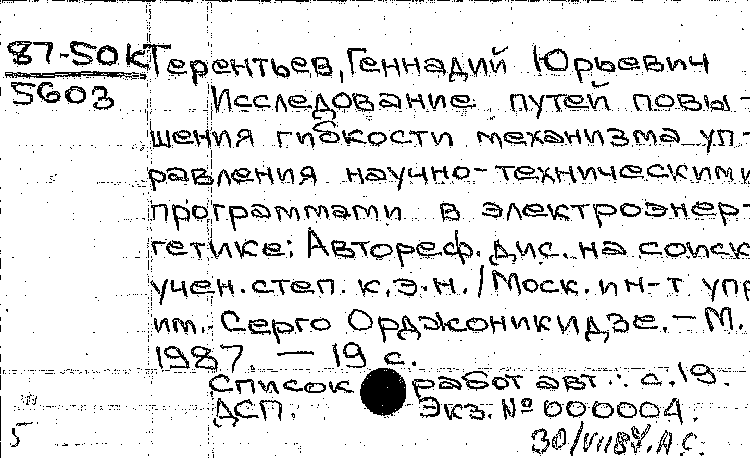 87-50К Терентьев, Геннадий Юрьевич
5603 Исследование путей повы-
шения гибкости механизма уп-
равления научно-техническими
программами в электроэнер-
гетике: Автореф. дис. на соиск
учен. степ. к.э.н. / Моск. ин-т упр
им. Серго Орджоникидзе. — М.
1987. — 19 с.
Список работ авт.: с. 19.
ДСП. Экз. № 000004.
5 30/VII 87. А.С.